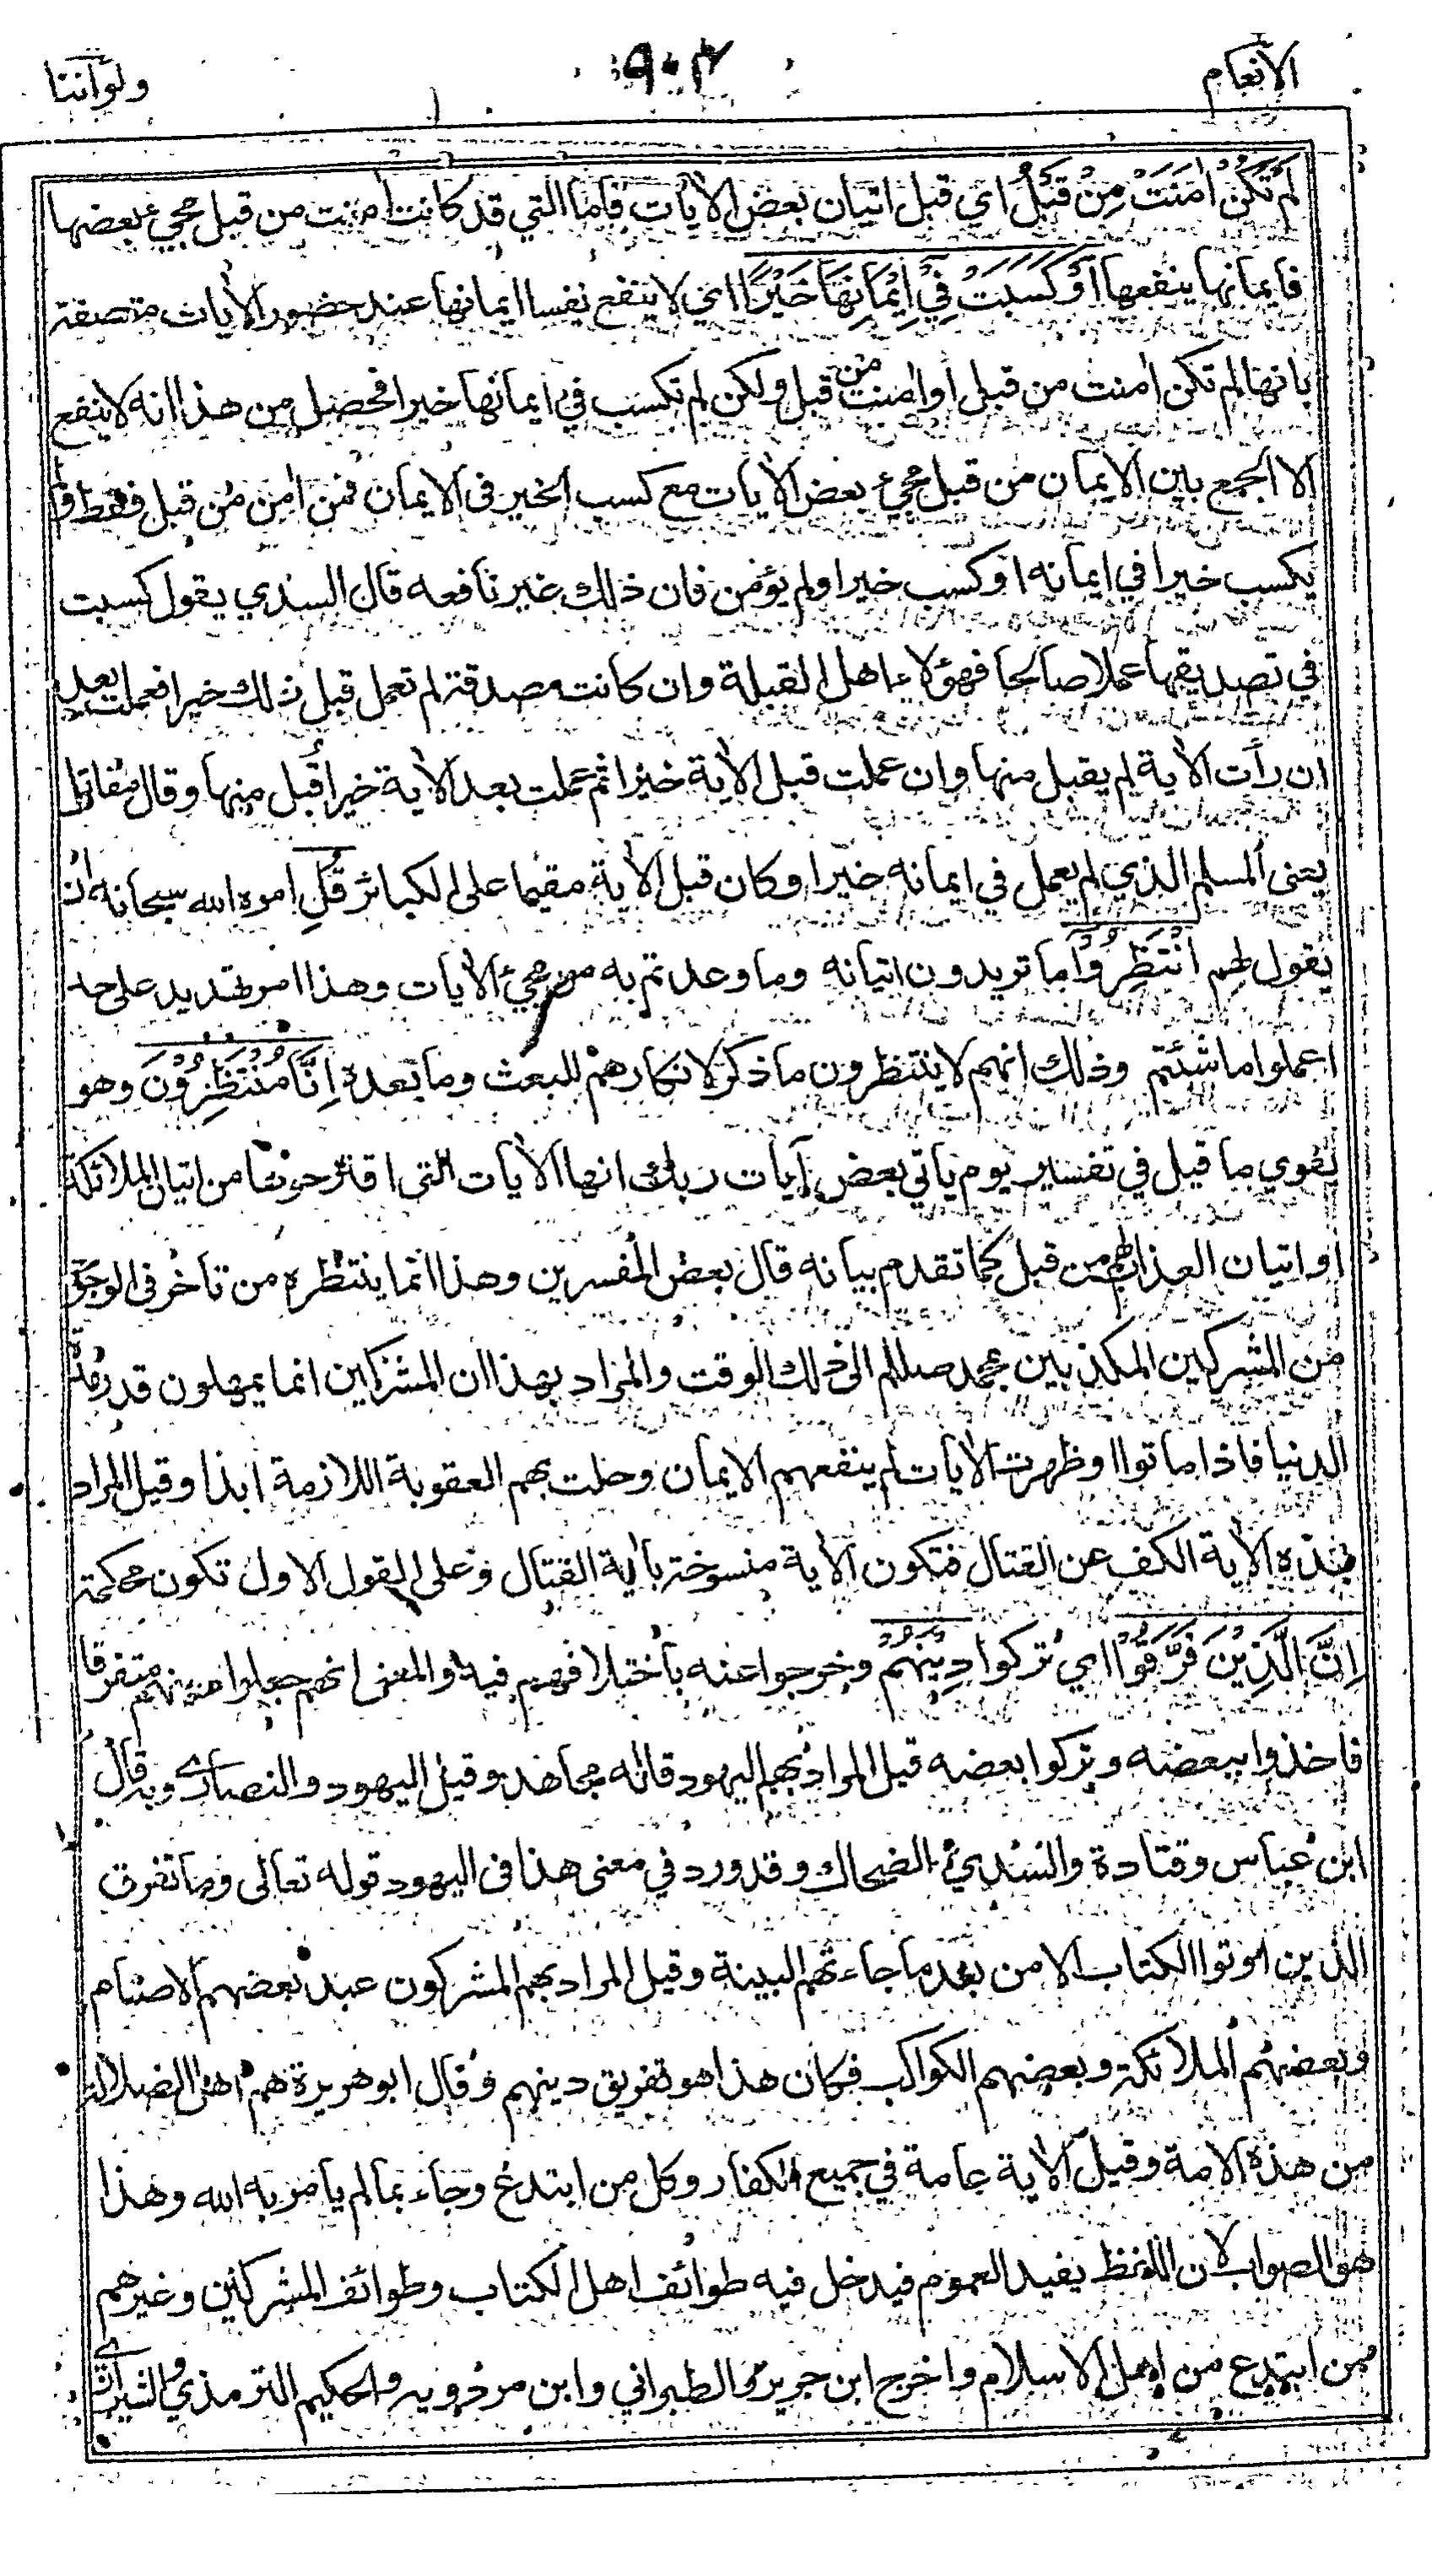 الانعام
٩٠٢
ولو اننا
لَمْ تَكُنْ اٰمَنَتْ مِنْ قَبْلُ اي قبل اتيان بعض الاٰيات فاما التي قد كانت اٰمنت من قبل مجيئ بعضها
فايمانها ينفعها اَوْ كَسَبَتْ فِيْ اِيْمَانِهَا خَيْرًا اي لا ينفع نفسا ايمانها عند حضور الاٰيات متصفة
بانها لم تكن اٰمنت من قبل او اٰمنت من قبل ولكن لم تكسب في ايمانها خيرا فحصل من هذا انه لا ينفع
الا الجمع بين الايمان من قبل مجيئ بعض الاٰيات مع كسب الخير في الايمان فمن اٰمن من قبل فقط ولم
يكسب خيرا في ايمانه او كسب خيرا ولم يؤمن فان ذلك غير نافعه قال السدي يقول كسبت
في تصديقها عملا صالحا فهؤلاء اهل القبلة وان كانت مصدقة لم تعمل قبل ذلك خيرا فعملت بعد
ان رأت الاٰية لم يقبل منها وان عملت قبل الاٰية خيرا ثم عملت بعد الاٰية خيرا قُبل منها وقال مقاتل
يعني المسلم الذي لم يعمل في ايمانه خيرا وكان قبل الاٰية مقيما على الكبائر قُلِ امره الله سبحانه ان
يقول لهم انْتَظِرُوْا ما تريدون اتيانه وما وعدتم به من مجيئ الاٰيات وهذا امر تهديد على حد
اعملوا ما شئتم وذلك انهم لا ينتظرون ما ذكر لانكارهم للبعث وما بعده اِنَّا مُنْتَظِرُوْنَ وهو
يقوي ما قيل في تفسير يوم ياتي بعض اٰيات ربك انها الاٰيات التي اقترحوها من اتيان الملائكة
او اتيان العذاب لهم من قبل كما تقدم بيانه قال بعض المفسرين وهذا انما ينتظره من تأخر في الوجود
من المشركين المكذبين بمحمد صللم الى ذلك الوقت والمراد بهذا ان المشركين انما يمهلون قدر مدة
الدنيا فاذا ماتوا او ظهرت الاٰيات لم ينفعهم الايمان وحلت بهم العقوبة اللازمة ابدا وقيل المراد
بهذه الاٰية الكف عن القتال فتكون الاٰية منسوخة باٰية القتال وعلى القول الاول تكون محكمة
اِنَّ الَّذِيْنَ فَرَّقُوْا اي تركوا دِيْنَهُمْ وخرجوا عنه باختلافهم فيه والمعنى انهم جعلوا دينهم متفرقا
فاخذوا ببعضه وتركوا بعضه قيل المراد بهم اليهود قاله مجاهد وقيل اليهود والنصارى وبه قال
ابن عباس وقتادة والسدي والضحاك وقد ورد في معنى هذا في اليهود قوله تعالى وما تفرق
الذين اوتوا الكتاب الا من بعد ما جاءتهم البينة وقيل المراد بهم المشركون عبد بعضهم الاصنام
وبعضهم الملائكة وبعضهم الكواكب فكان هذا هو تفريق دينهم وقال ابو هريرة هم اهل الضلالة
من هذه الامة وقيل الاٰية عامة في جميع الكفار وكل من ابتدع وجاء بما لم يأمر به الله وهذا
هو الصواب لان اللفظ يفيد العموم فيدخل فيه طوائف اهل الكتاب وطوائف المشركين وغيرهم
ممن ابتدع من اهل الاسلام واخرج ابن جرير والطبراني وابن مردويه والحكيم الترمذي والشيرازي